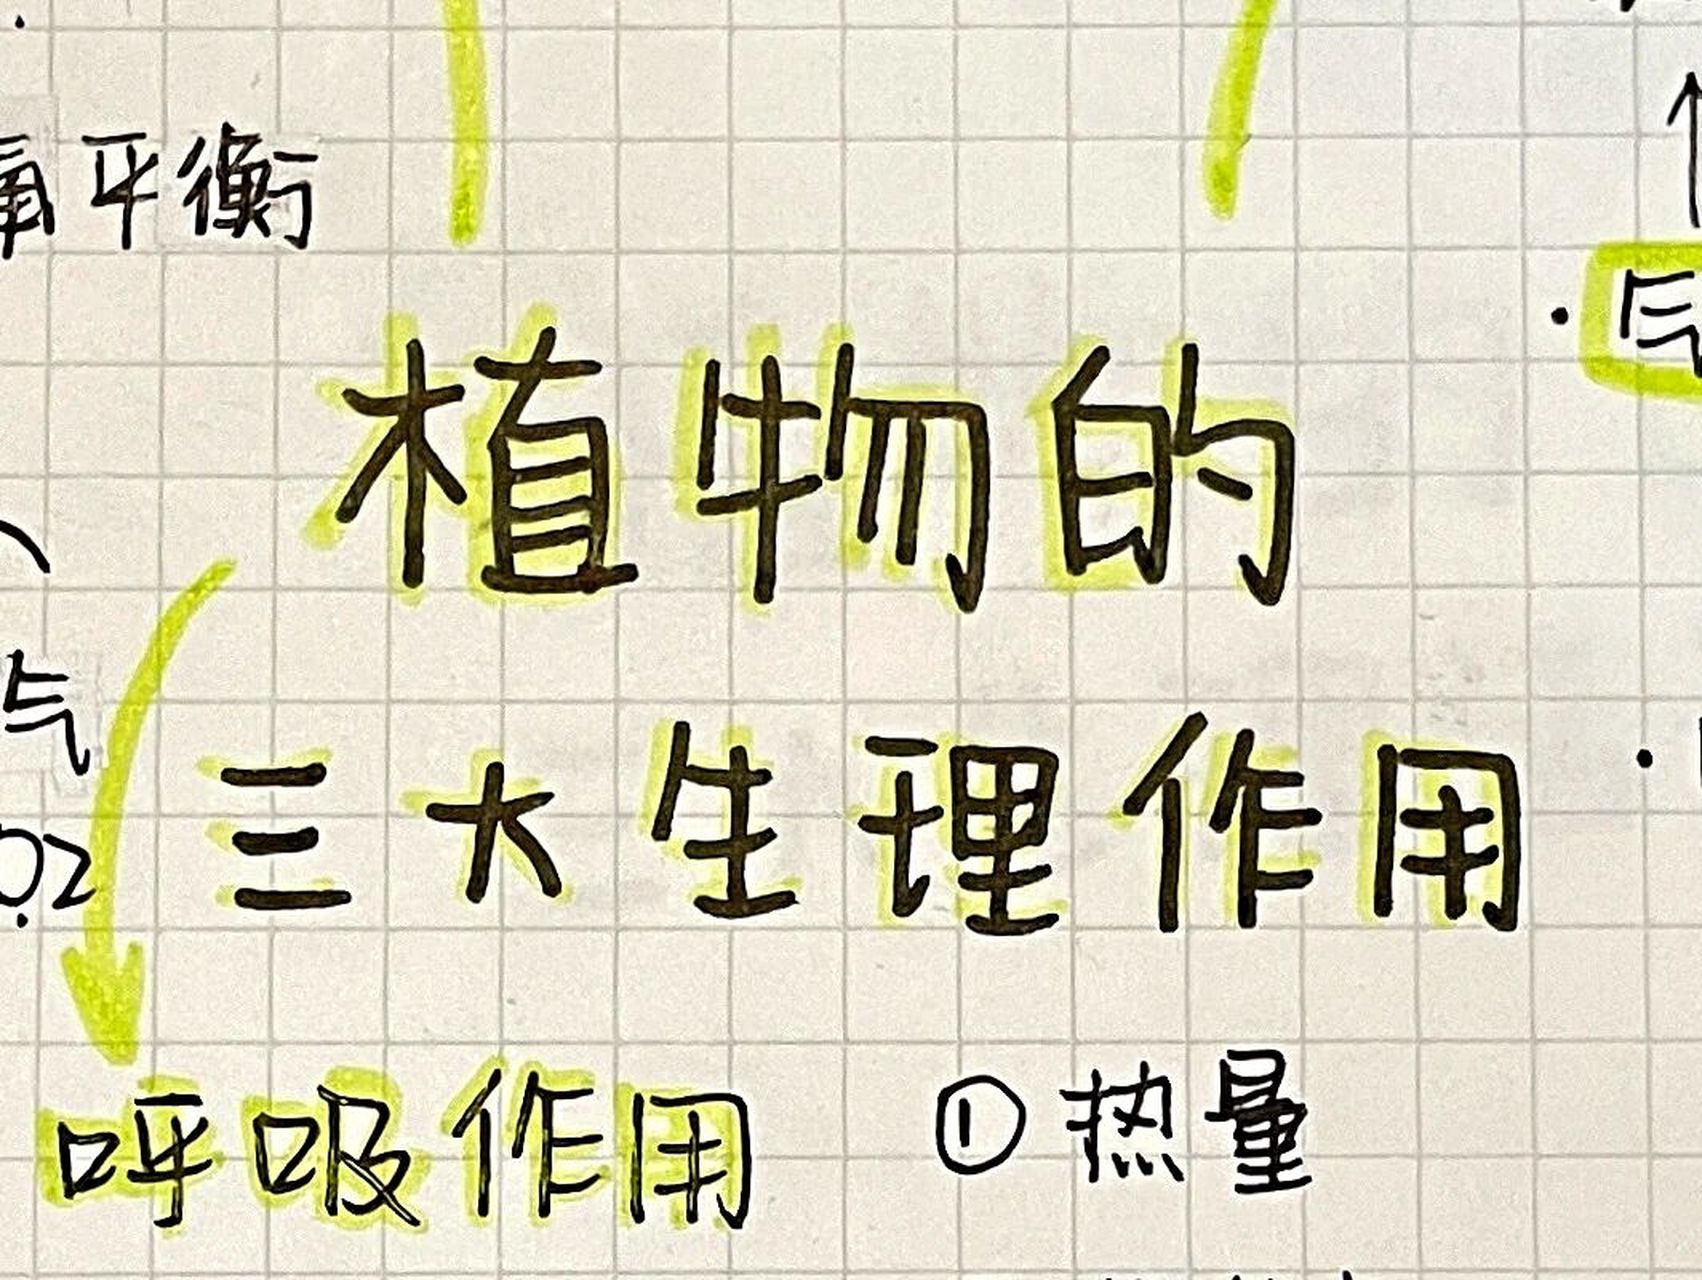 平衡
植物的
气
三大生理作用
O2
呼吸作用
① 热量